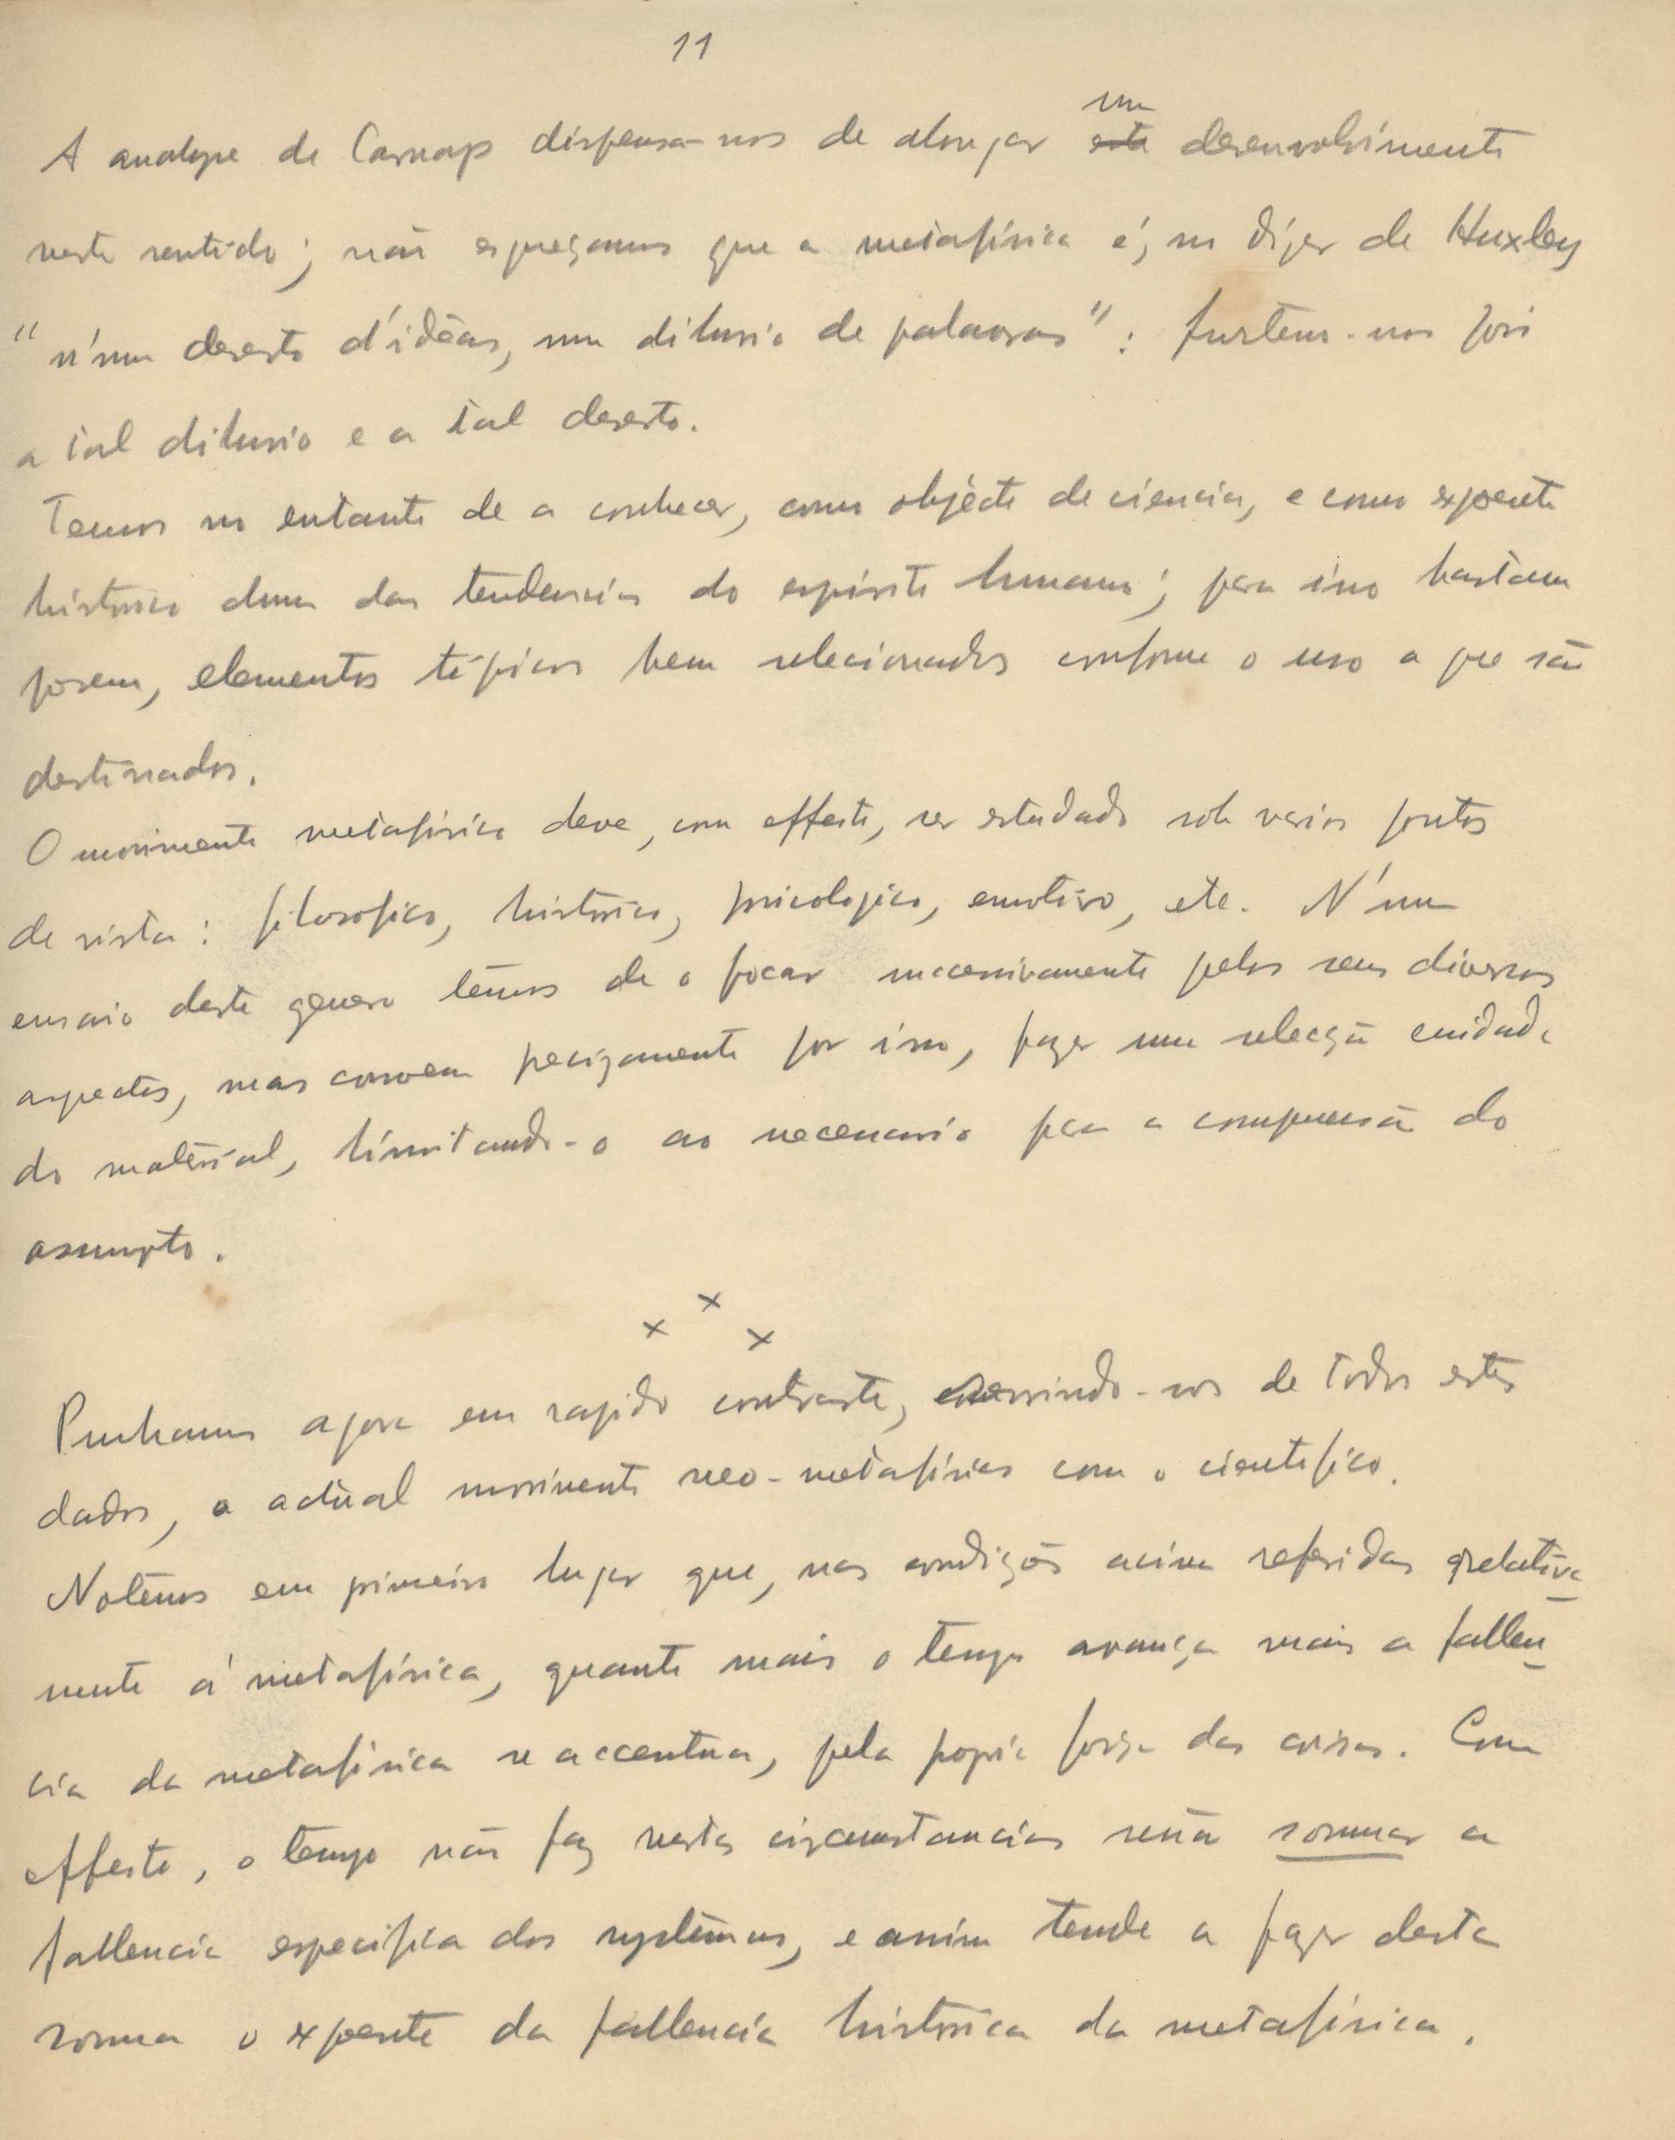 11
um
A analyse de Carnap dispensa-nos de alongar este desenvolvimento
neste sentido; não esqueçamos que a metafísica é, no dizer de Huxley
"n'um deserto d'idêas, um diluvio de palavras": furtemo-nos pois
a tal diluvio e a tal deserto.
Temos no entanto de a conhecer, como objécto de ciencia, e como expoente
historico duma das tendencias do espirito humano; para isso bastam
porem, elementos típicos bem selecionados conforme o uso a que são
destinados.
O movimento metafísico deve, com effeito, ser estudado sob varios pontos
de vista: filosofico, historico, psicologico, emotivo, etc. N'um
ensaio deste genero temos de o focar successivamente pelos seus diversos
aspectos, mas convem precizamente por isso, fazer uma selecção cuidada
do material, limitando-o ao necessario para a compreensão do
assumpto.
x x x
Ponhamos agora em rapido contraste, servindo-nos de todos estes
dados, o actual movimento neo-metafísico com o cientifico.
Notemos em primeiro lugar que, nas condições acima referidas relativa-
mente á metafísica, quanto mais o tempo avança mais a fallen-
cia da metafísica se accentua, pela propria força das coisas. Com
effeito, o tempo não faz nestas circumstancias senão sommar a
fallencia especifica dos systemas, e assim tende a fazer desta
somma o expoente da fallencia historica da metafísica.